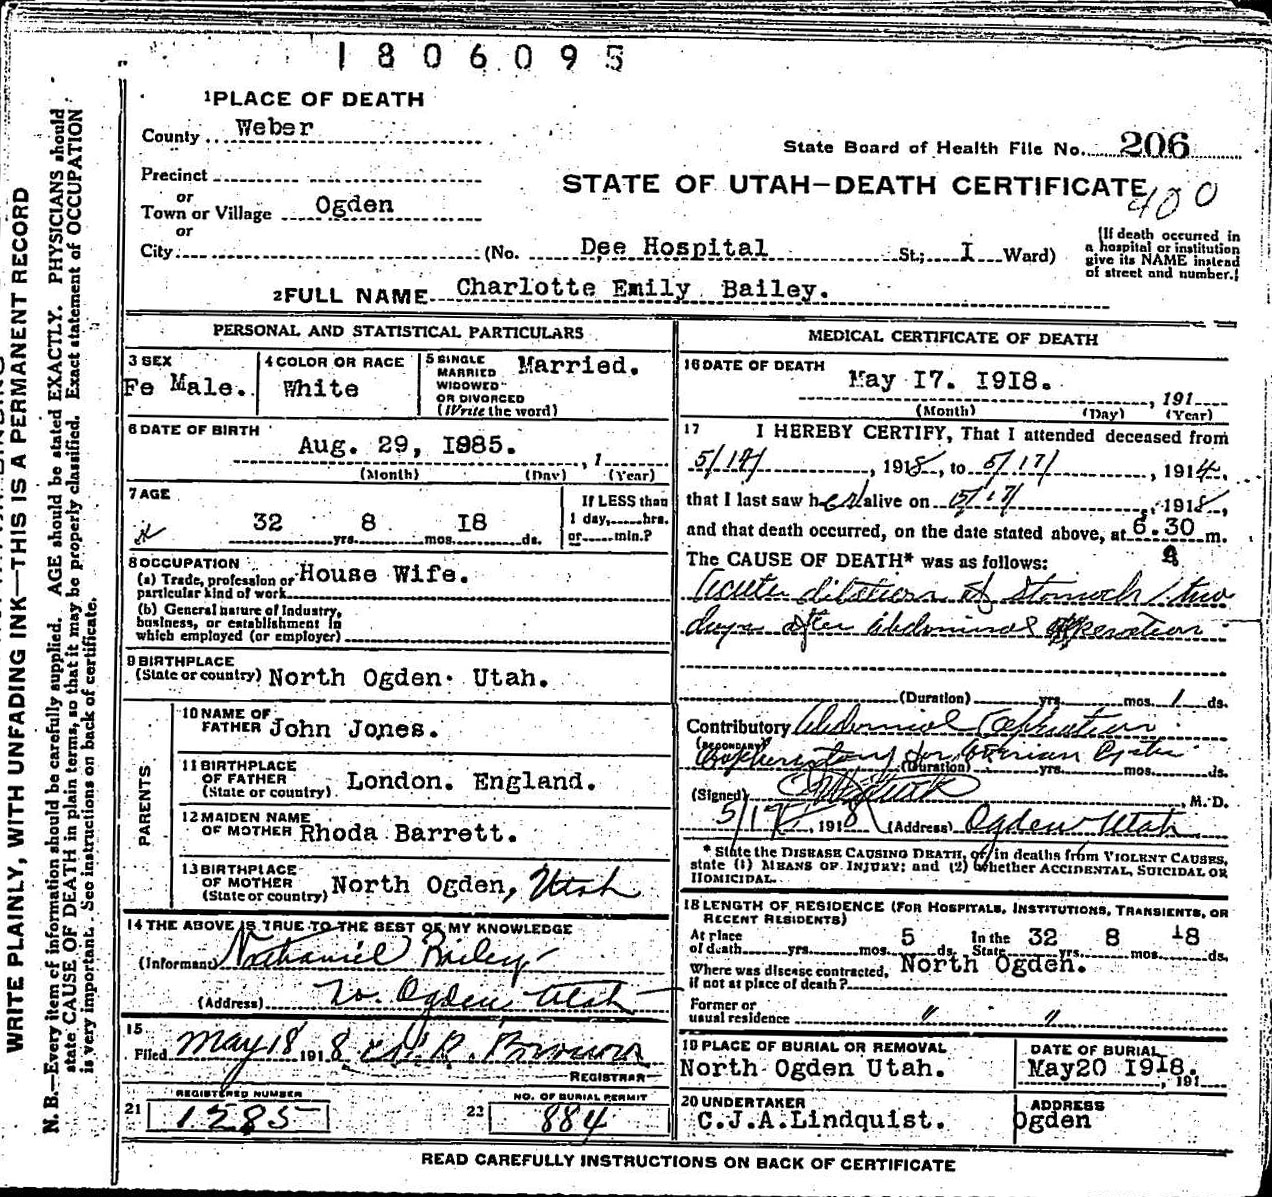 1806095
1PLACE OF DEATH
County Weber
State Board of Health File No. 206
Precinct
STATE OF UTAH—DEATH CERTIFICATE
400
or
Town or Village Ogden
or
City (No. Dee Hospital St.; I Ward)
(If death occurred in
a hospital or institution
give its NAME instead
of street and number.)
2FULL NAME Charlotte Emily Bailey.
PERSONAL AND STATISTICAL PARTICULARS
3 SEX
Fe Male.
4 COLOR OR RACE
White
5 SINGLE
MARRIED
WIDOWED
OR DIVORCED
(Write the word)
Married.
6 DATE OF BIRTH
Aug. 29, I985. , 1
(Month) (Day) (Year)
7 AGE
32 yrs. 8 mos. I8 ds.
If LESS than
1 day, hrs.
or min.?
8 OCCUPATION
(a) Trade, profession or
particular kind of work House Wife.
(b) General nature of Industry,
business, or establishment in
which employed (or employer)
9 BIRTHPLACE
(State or country) North Ogden Utah.
PARENTS
10 NAME OF
FATHER John Jones.
11 BIRTHPLACE
OF FATHER
(State or country) London. England.
12 MAIDEN NAME
OF MOTHER Rhoda Barrett.
13 BIRTHPLACE
OF MOTHER
(State or country) North Ogden, Utah
14 THE ABOVE IS TRUE TO THE BEST OF MY KNOWLEDGE
(Informant) Nathaniel Bailey
(Address) No. Ogden Utah
15
Filed May 18 1918 R. Brown
REGISTRAR
REGISTERED NUMBER
21 1285
NO. OF BURIAL PERMIT
22 884
MEDICAL CERTIFICATE OF DEATH
16 DATE OF DEATH
May I7. I9I8. , 191
(Month) (Day) (Year)
17 I HEREBY CERTIFY, That I attended deceased from
5/14/ , 1918, to 5/17/ , 191
that I last saw her alive on 5/17/ , 1918,
and that death occurred, on the date stated above, at 6.30 m.
a
The CAUSE OF DEATH* was as follows:
Acute dilatation of Stomach, two
days after abdominal operation
(Duration) yrs. mos. 1 ds.
Contributory Abdominal Operation
(SECONDARY) Oophorectomy for Ovarian Cysts
(Duration) yrs. mos. ds.
(Signed) , M. D.
5/17, 1918 (Address) Ogden Utah
* State the DISEASE CAUSING DEATH, or, in deaths from VIOLENT CAUSES,
state (1) MEANS OF INJURY; and (2) whether ACCIDENTAL, SUICIDAL OR
HOMICIDAL.
18 LENGTH OF RESIDENCE (FOR HOSPITALS, INSTITUTIONS, TRANSIENTS, OR
RECENT RESIDENTS)
At place
of death yrs. mos. 5 ds. In the
State 32 yrs. 8 mos. 18 ds.
Where was disease contracted,
if not at place of death? North Ogden.
Former or
usual residence " "
19 PLACE OF BURIAL OR REMOVAL
North Ogden Utah.
DATE OF BURIAL
May20 I9I8. , 191
20 UNDERTAKER
C.J.A.Lindquist.
ADDRESS
Ogden
READ CAREFULLY INSTRUCTIONS ON BACK OF CERTIFICATE
WRITE PLAINLY, WITH UNFADING INK—THIS IS A PERMANENT RECORD
N. B.—Every item of information should be carefully supplied. AGE should be stated EXACTLY. PHYSICIANS should
state CAUSE OF DEATH in plain terms, so that it may be properly classified. Exact statement of OCCUPATION
is very important. See instructions on back of certificate.